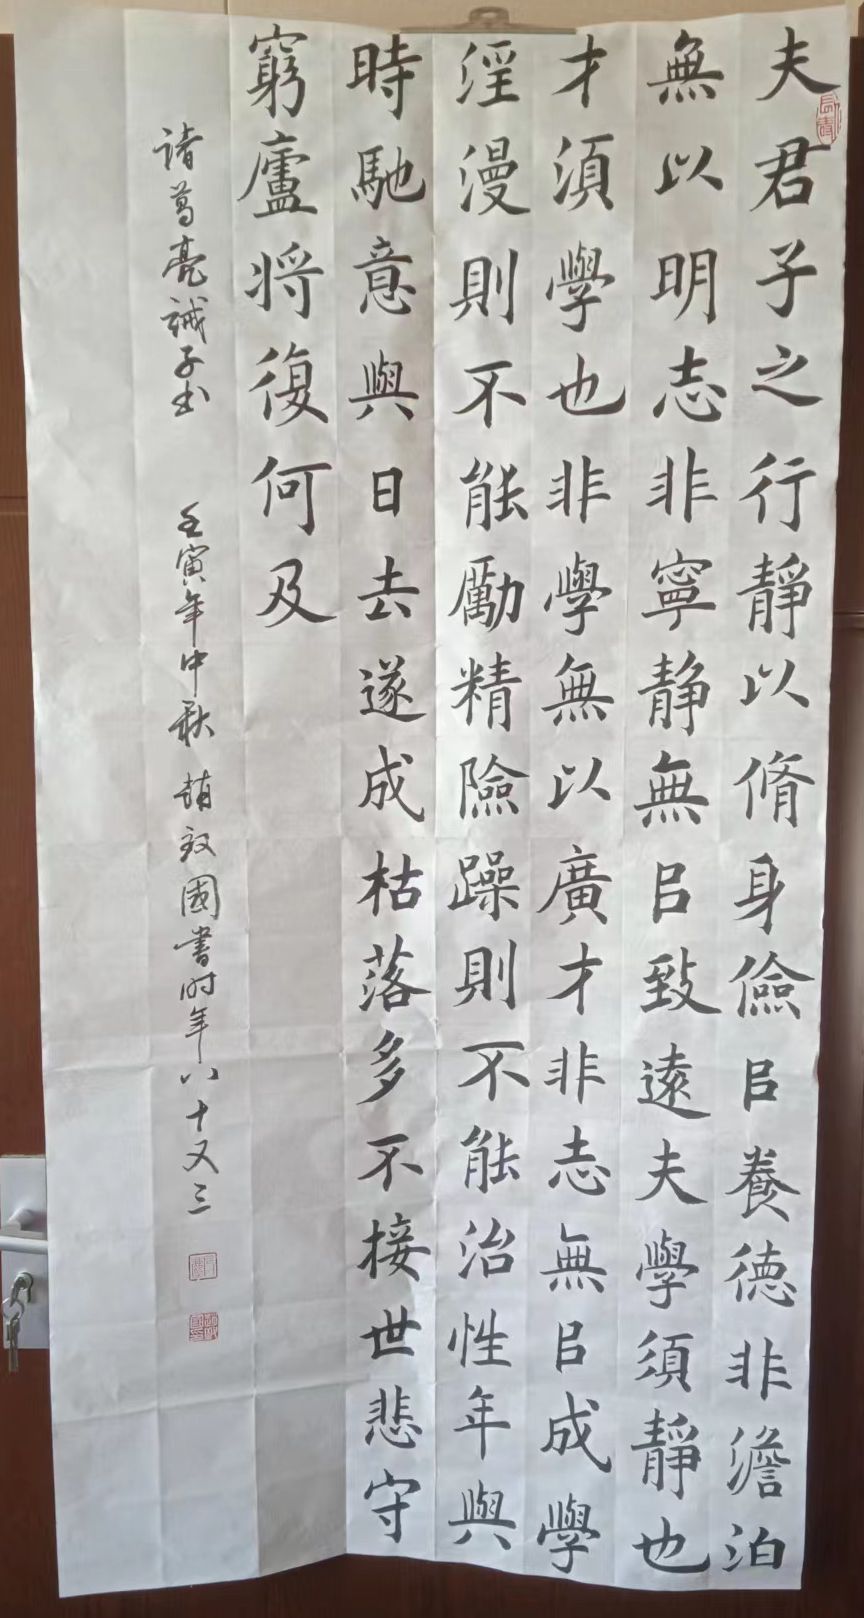 夫君子之行靜以脩身儉㠯養德非澹泊
無以明志非寧静無㠯致遠夫學須靜也
才須學也非學無以廣才非志無㠯成學
淫漫則不能勵精險躁則不能治性年與
時馳意與日去遂成枯落多不接世悲守
窮廬将復何及
诸葛亮诫子书 壬寅年中秋 趙國書时年八十又三
長壽